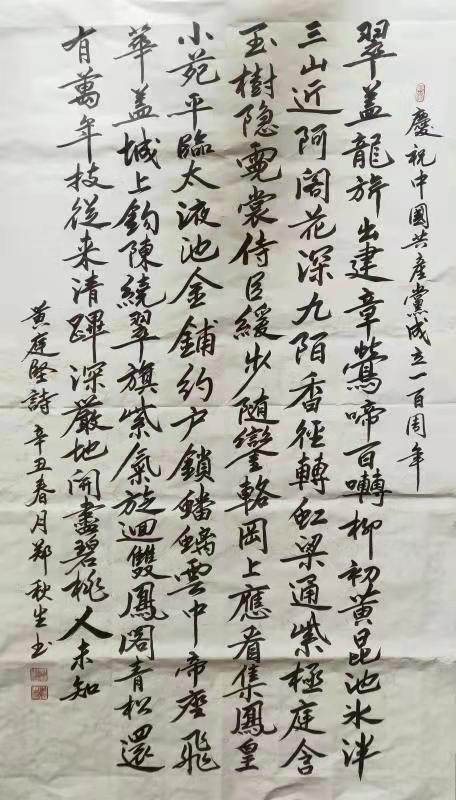 慶祝中國共產黨成立一百周年
翠盖龍旂出建章鶯啼百囀柳初黄昆池冰泮
三山近阿閣花深九陌香徑轉虹梁通紫極庭含
玉樹隐霓裳侍臣緩步随鑾輅岡上應看集鳳皇
小苑平臨太液池金鋪約户鎖蟠螭雲中帝座飛
華盖城上鈎陳繞翠旗紫氣旋迴雙鳳闕青松還
有萬年枝從来清蹕深嚴地開盡碧桃人未知
黄庭堅詩辛丑春月郑秋生书